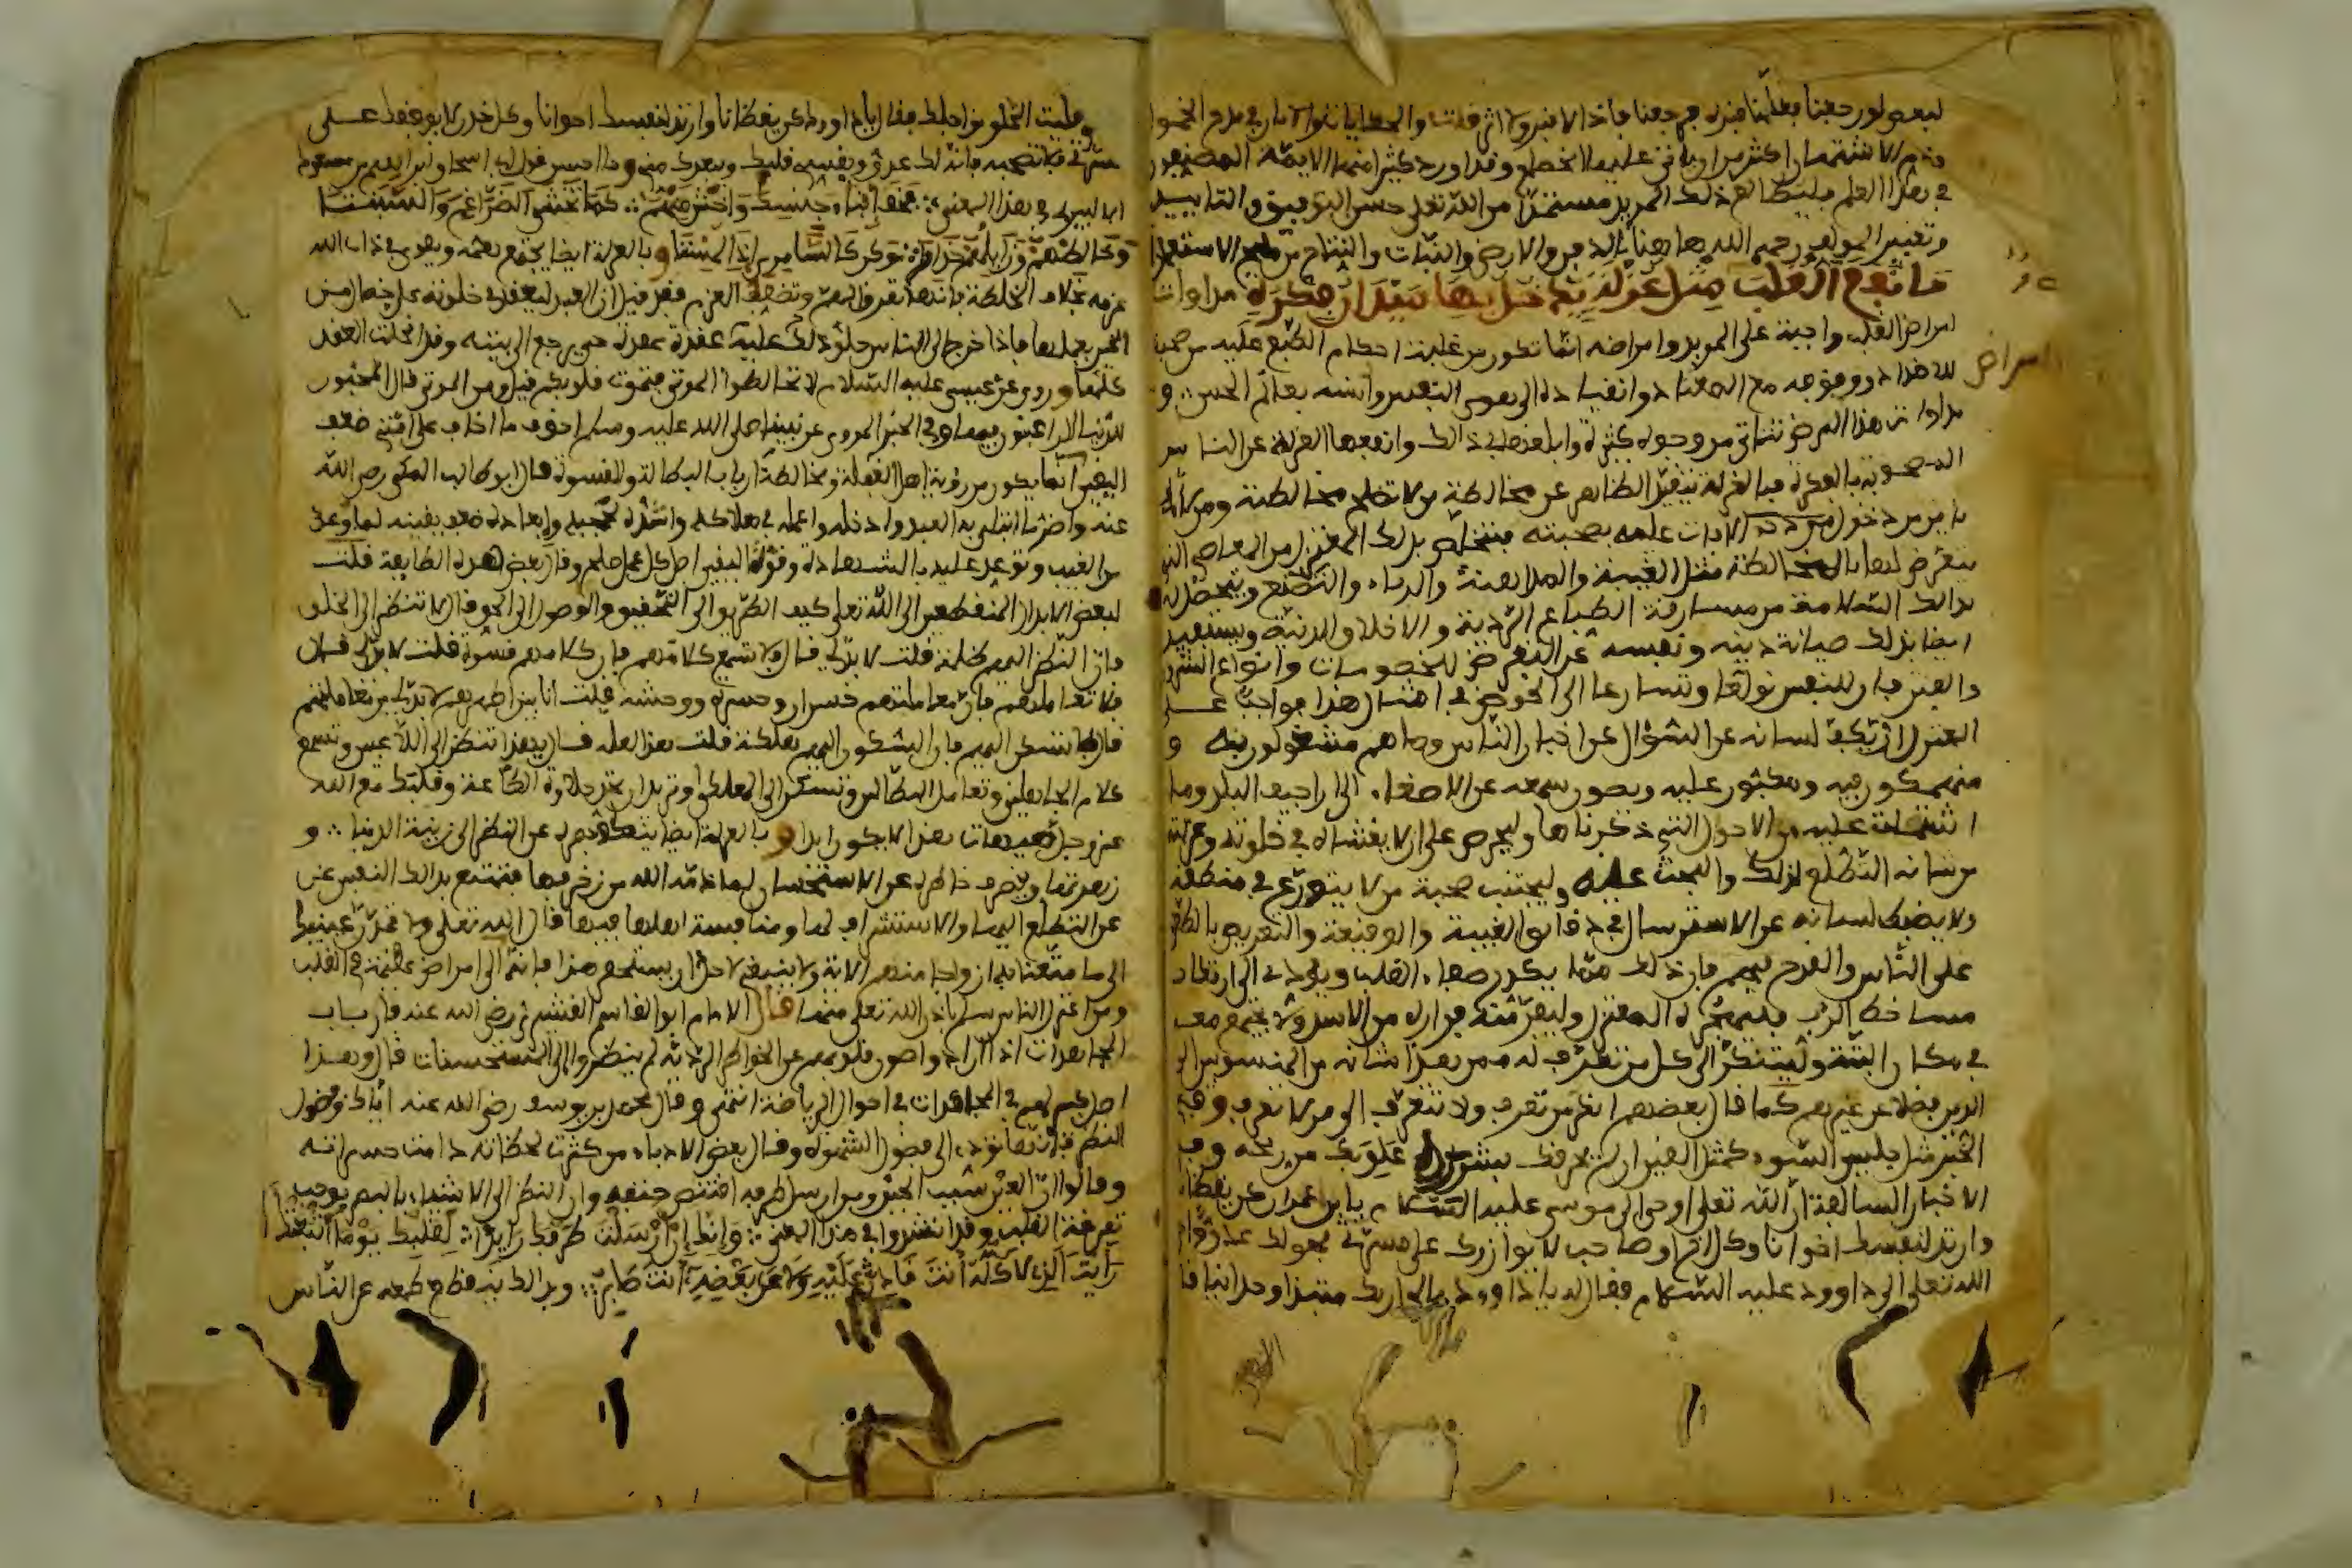 لبعض لو رجعنا
في هذا العلم فليطالع ذلك المريد مستمدا من الله تعلى حسن التوفيق والتأييد
وتعبير المولف رحمه الله هاهنا
ما نفع القلب مثل عزلة يدخل بها ميدان فكرة مداوات
امراض القلب واجبة على المريد وامراضه انما تكون من غلبة احكام الطبع عليه من صحبة
للاضداد ووقوفه مع المعتاد وانقياده الى هوى النفس وانسه بعالم الحس و
مداوات هذا المرض تتاتى من وجوه كثيرة وابلغها في ذالك وانفعها العزلة عن الناس
المصحوبة بالفكرة فبالعزلة يتقى الظاهر عن مخالطة من لا تصلح مخالطته ومن لا
يامن من دخول الآفات عليه بصحبته فيتخلص بذلك المعتزل من المعاصي التي
يتعرض لها بالمخالطة مثل الغيبة والمداهنة والرياء والتصنع ويحصل له
بذالك السلامة من مسارقة الطباع الردية والاخلاق الدنية ويستفيد
ايضا بذلك صيانة دينه ونفسه عن التعرض للخصومات وانواع الشرور
والفتن فان للنفس تولعا وتسارعا الى الخوض في امثال هذا فواجب على
المعتزل ان يكف لسانه عن السؤال عن اخبار الناس وما هم مشغولون به و
منهمكون فيه ومكبون عليه ويصون سمعه عن الاصغاء الى اراجيف البلد وما
اشتملت عليه من الاحوال التي ذكرناها وليحرص على ان لا يغشاه في خلوته وعزلته
من شانه التطلع لذلك والبحث عليه وليجتنب صحبة من لا يتورع في منطقه
ولا يضبط لسانه عن الاسترسال في دقايق الغيبة والوقيعة والتعريض بالطعن
على الناس والقدح فيهم فان ذلك مما يكدر صفاء القلب ويودي الى ارتكاب
مساخط الرب فليهجره المعتزل وليفر منه فراره من الاسد ولا يجتمع معه
في مكان البتة وليتنكر الى كل من تعرف له ممن هذا شانه من المنسوبين الى
الدين فضلا عن غيرهم كما قال بعضهم انكر من تعرف ولا تتعرف الى من لا تعرف وفي
الخبر مثل جليس السوء كمثل القين ان لم يحرقك بشرره علق بك من ريحه وفي
الاخبار السالفة ان الله تعلى اوحى الى موسى عليه السلام يا ابن عمران كن يقظانا
وارتد لنفسك اخوانا وكل اخ او صاحب لا يوازرك على مسرتي فهو لك عدو
الله تعلى الى داوود عليه السلام فقال له يا داوود مالي اراك منتبذا وحدانيا قال
امراض
وقليت الخلق من اجلك فقال يا داوود كن يقظانا وارتد لنفسك اخوانا وكل خدن لا يوافقك على
مسرتي فلا تصحبه فانه لك عدو ويقسي قلبك ويبعدك مني وما احسن قول ابي اسحاق ابراهيم بن مسعود
الالبيري في هذا المعنى فخف ابناء جنسك واخش منهم كما تخشى الضراغم والسبنتا
وخالطهم وزايلهم حذارا وكن كالسامري اذا لمستا وبالعزلة ايضا يجتمع همه ويقوى في ذات الله
عزمه بخلاف الخلطة فانها تفرق الهم وتضعف العزم فقد قيل ان العبد ليعقد في خلوته على خصال من
الخير يعملها فاذا خرج الى الناس حلوا ذلك عليه عقدة عقدة حتى يرجع الى بيته وقد انحلت العقد
كلها وروى عن عيسى عليه السلام لا تخالطوا الموتى فتموت قلوبكم قيل ومن الموتى قال المحبون
للدنيا الراغبون فيها وفي الخبر المروى عن نبينا صلى الله عليه وسلم اخوف ما اخاف على امتي ضعف
اليقين انما يكون من رؤية اهل الغفلة ومخالطة ارباب البطالة والقسوة قال ابو طالب المكي رضي الله
عنه واضر ما ابتلى به العبد وادخله واعمله في هلاكه واشده لحجبه وابعاده ضعف يقينه لما وعد
من الغيب وتوعد عليه بالشهادة وقوة اليقين اصل كل عمل صالح وقال بعض هذه الطايفة قلت
لبعض الابدال المنقطعين الى الله تعلى كيف الطريق الى التحقيق والوصول الى الحق قال لا تنظر الى الخلق
فان النظر اليهم ظلمة قلت لا بد لي قال فلا تسمع كلامهم فان كلامهم قسوة قلت لا بد لي قال
فلا تعاملهم فان معاملتهم خسران وحسرة ووحشة قلت انا بين اظهرهم لا بد لي من معاملتهم
قال فلا تسكن اليهم فان السكون اليهم هلكة قلت هذا العلة قال يا هذا تنظر الى اللاعبين وتسمع
كلام الجاهلين وتعامل البطالين وتسكن الى الهلكى وتريد ان تجد حلاوة الطاعة وقلبك مع الله
عز وجل هيهات هذا لا يكون ابدا وبالعزلة ايضا ينكف بصره عن النظر الى زينة الدنيا و
زهرتها وينصرف خاطره عن الاستحسان لما ذمه الله من زخرفها فتمتنع بذالك النفس عن
عن التطلع اليها والاستشراف لها ومنافسة اهلها فيها قال الله تعلى ولا تمدن عينيك
الى ما متعنا به ازواجا منهم الاية ولا ينبغي لاحد ان يستحقر هذا فانه الى امراض عظيمة في القلب
ومن اعتزل الناس سلم باذن الله تعلى منها قال الامام ابو القاسم القشيري رضي الله عنه فارباب
المجاهدات اذا ارادوا صون قلوبهم عن الخواطر الردية لم ينظروا الى المستحسنات قال وهذا
اصل كبير لهم في المجاهدات في احوال الرياضة انتهى وقال محمد بن يوسف رضي الله عنه اياك وفضول
النظر فانها تؤدي الى فضول الشهوة وقال بعض الادباء من كثرت لحظاته دامت حسراته
وقالوا ان العين سبب الحين ومن ارسل طرفه اقتنص حتفه وان النظر الى الاشياء بالبصر يوجب
تفرقة القلب وقد انشدوا في هذا المعنى وانك ان ارسلت طرفك رايدا لقلبك يوما اتعبتك
رأيت الذي لا كله انت قادر عليه ولا عن بعضه انت صابر وبذالك ينقطع طمعه عن الناس